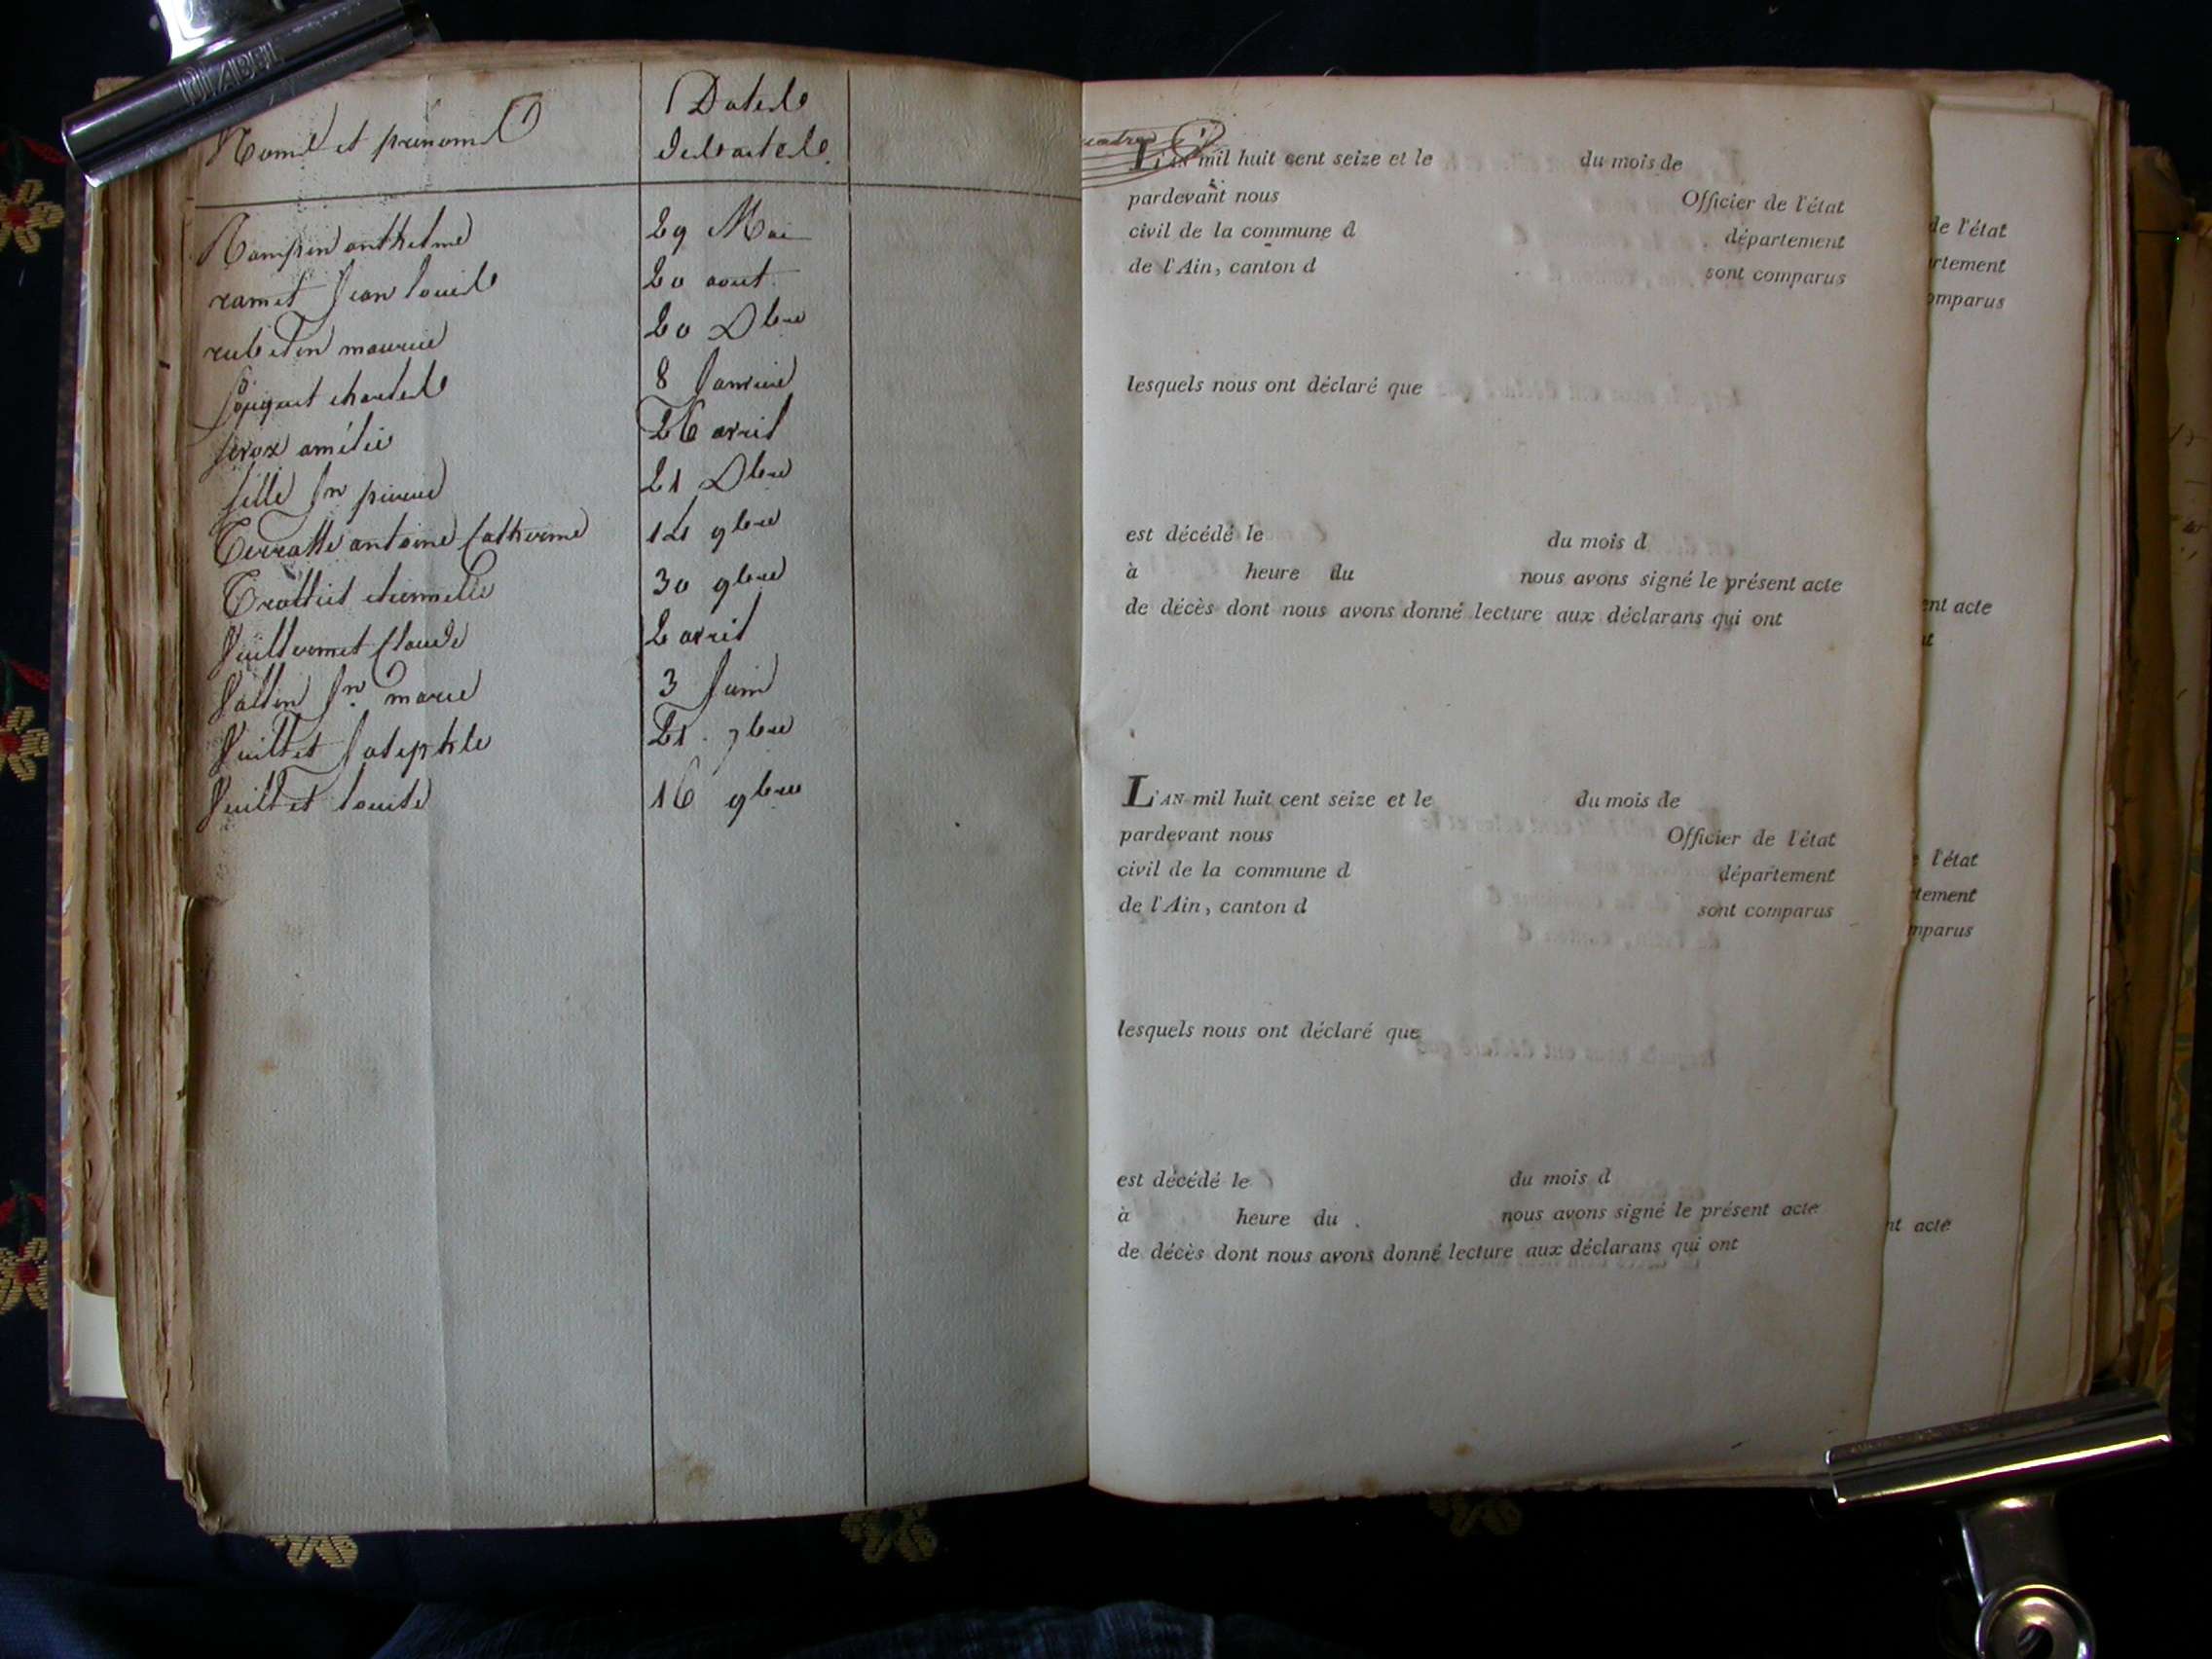 DIABEL
Noms et prenoms
Dates
des actes.
Rampin anthelme 29 Mai
ramet Jean Louis 20 aout
rubetin maurice 20 Xbre
charles 8 Janvier
amélie 26 avril
Jn pierre 21 Xbre
antoine Catherine 14 9bre
30 9bre
Vuillermet Claude 2 avril
Jn. marie 3 Juin
Vuillet Josephte 21 7bre
Vuillet Louise 16 9bre
L'AN mil huit cent seize et le du mois de
pardevant nous Officier de l'état
civil de la commune d département
de l'Ain, canton d sont comparus
lesquels nous ont déclaré que
est décédé le du mois d
à heure du nous avons signé le présent acte
de décès dont nous avons donné lecture aux déclarans qui ont
L'AN mil huit cent seize et le du mois de
pardevant nous Officier de l'état
civil de la commune d département
de l'Ain, canton d sont comparus
lesquels nous ont déclaré que
est décédé le du mois d
à heure du nous avons signé le présent acte
de décès dont nous avons donné lecture aux déclarans qui ont
de l'état
rtement
omparus
ent acte
l'état
tement
mparus
nt acte